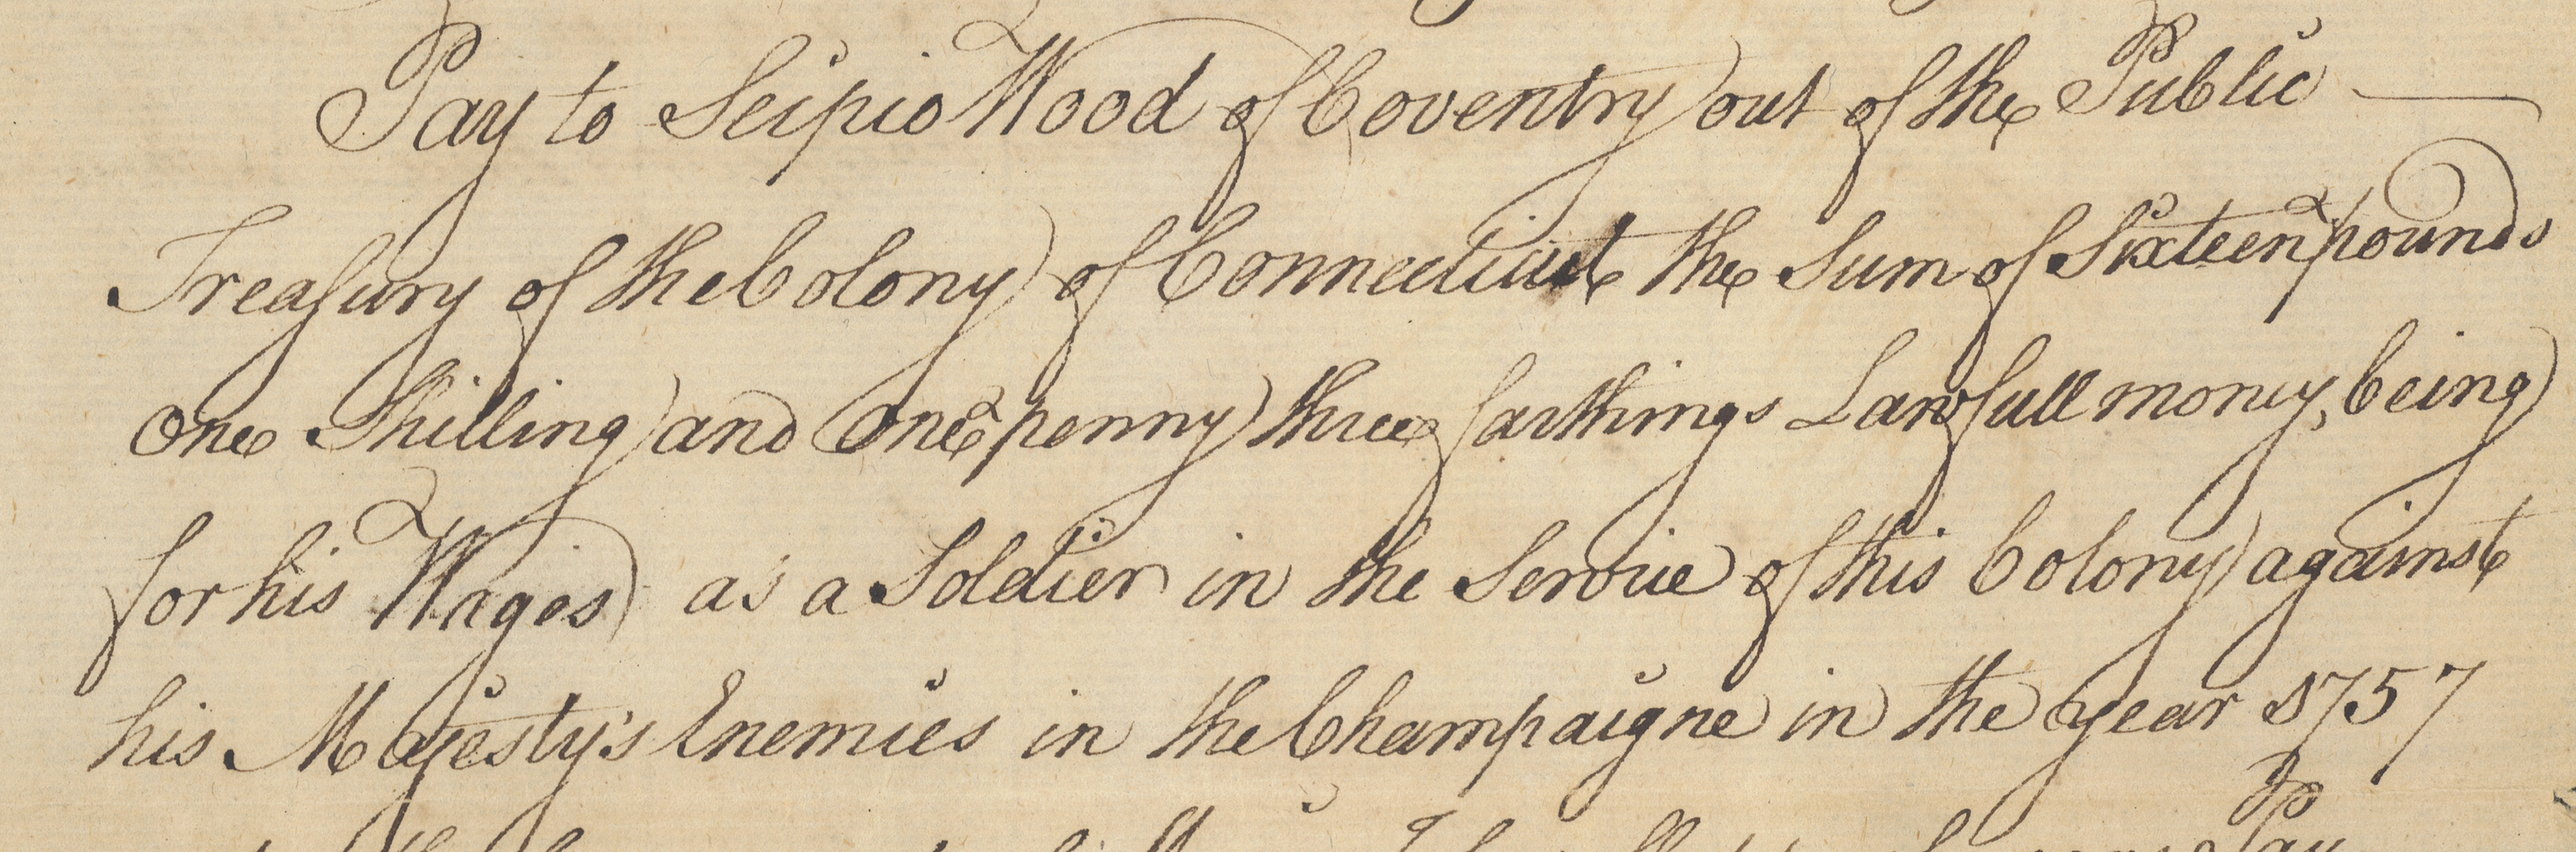 Pay to Scipio Wood of Coventry out of the Public
Treasury of the Colony of Connecticut the Sum of Sixteen pounds
One Shilling and One penny three farthings Lawfull money, being
for his Wages as a Soldier in the Service of this Colony against
his Majesty's Enemies in the Champaigne in the year 1757